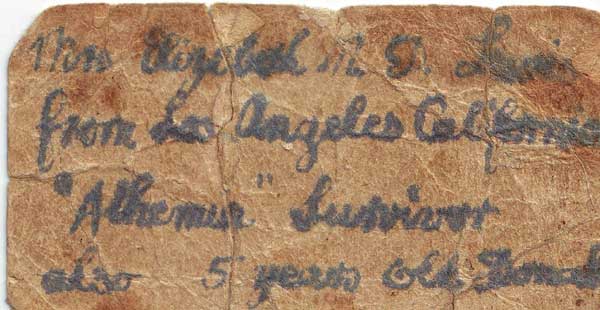 Mrs Elizabeth M D.
from Los Angeles California
"Athenia" Survivor
also 5 years old